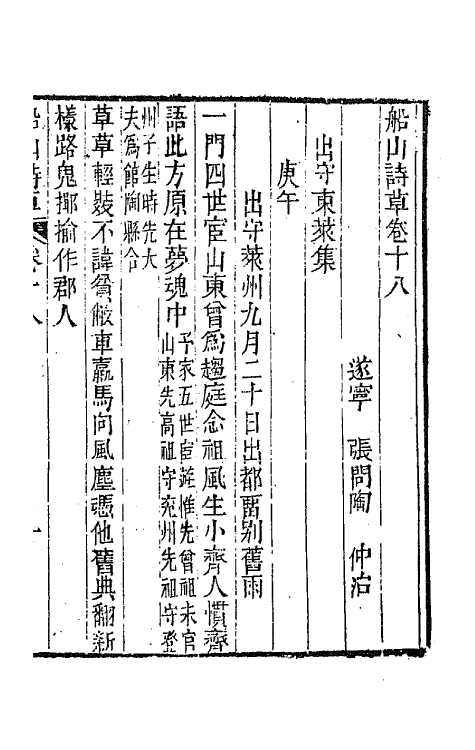 船山詩草卷十八
遂寧 張問陶 仲冶
出守東萊集
庚午
出守萊州九月二十日出都畱别舊雨
一門四世宦山東曾爲趨庭念祖風生小齊人慣齊
語此方原在夢魂中予家五世宦遊惟先曾祖未官
山東先高祖守兗州先祖守登
州子生時先大
夫爲館陶縣令
草草輕裝不諱貧敝車羸馬向風塵憑他舊典翻新
樣路鬼揶揄作郡人
船山詩草 卷十八 一